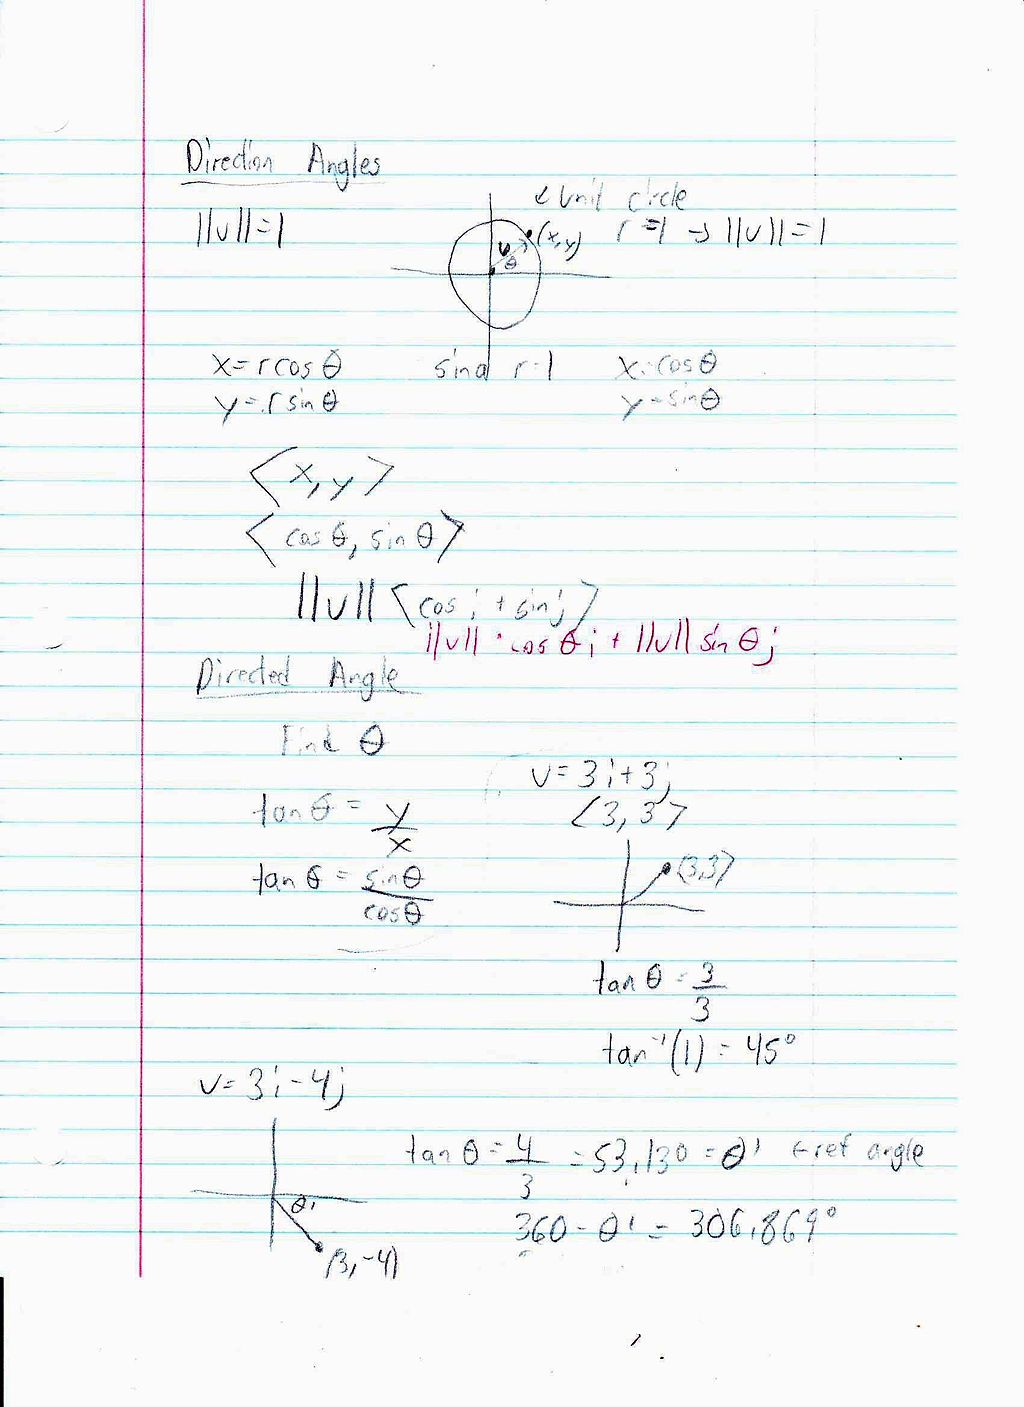 Direction Angles
||u||=1
← Unit circle
(x,y) r=1 → ||u||=1
u
θ
x=rcosθ since r=1 x=cosθ
y=rsinθ y=sinθ
<x,y>
<cosθ, sinθ>
||v|| <cos i + sin j>
||v|| · cosθ i + ||v|| sinθ j
Directed Angle
Find θ
v=3i+3j
tanθ = y/x
<3,3>
tanθ = sinθ/cosθ
(3,3)
tanθ = 3/3
tan⁻¹(1) = 45°
v=3i-4j
tanθ = 4/3 = 53.130 = θ' ← ref angle
θ'
360 - θ' = 306.869°
(3,-4)